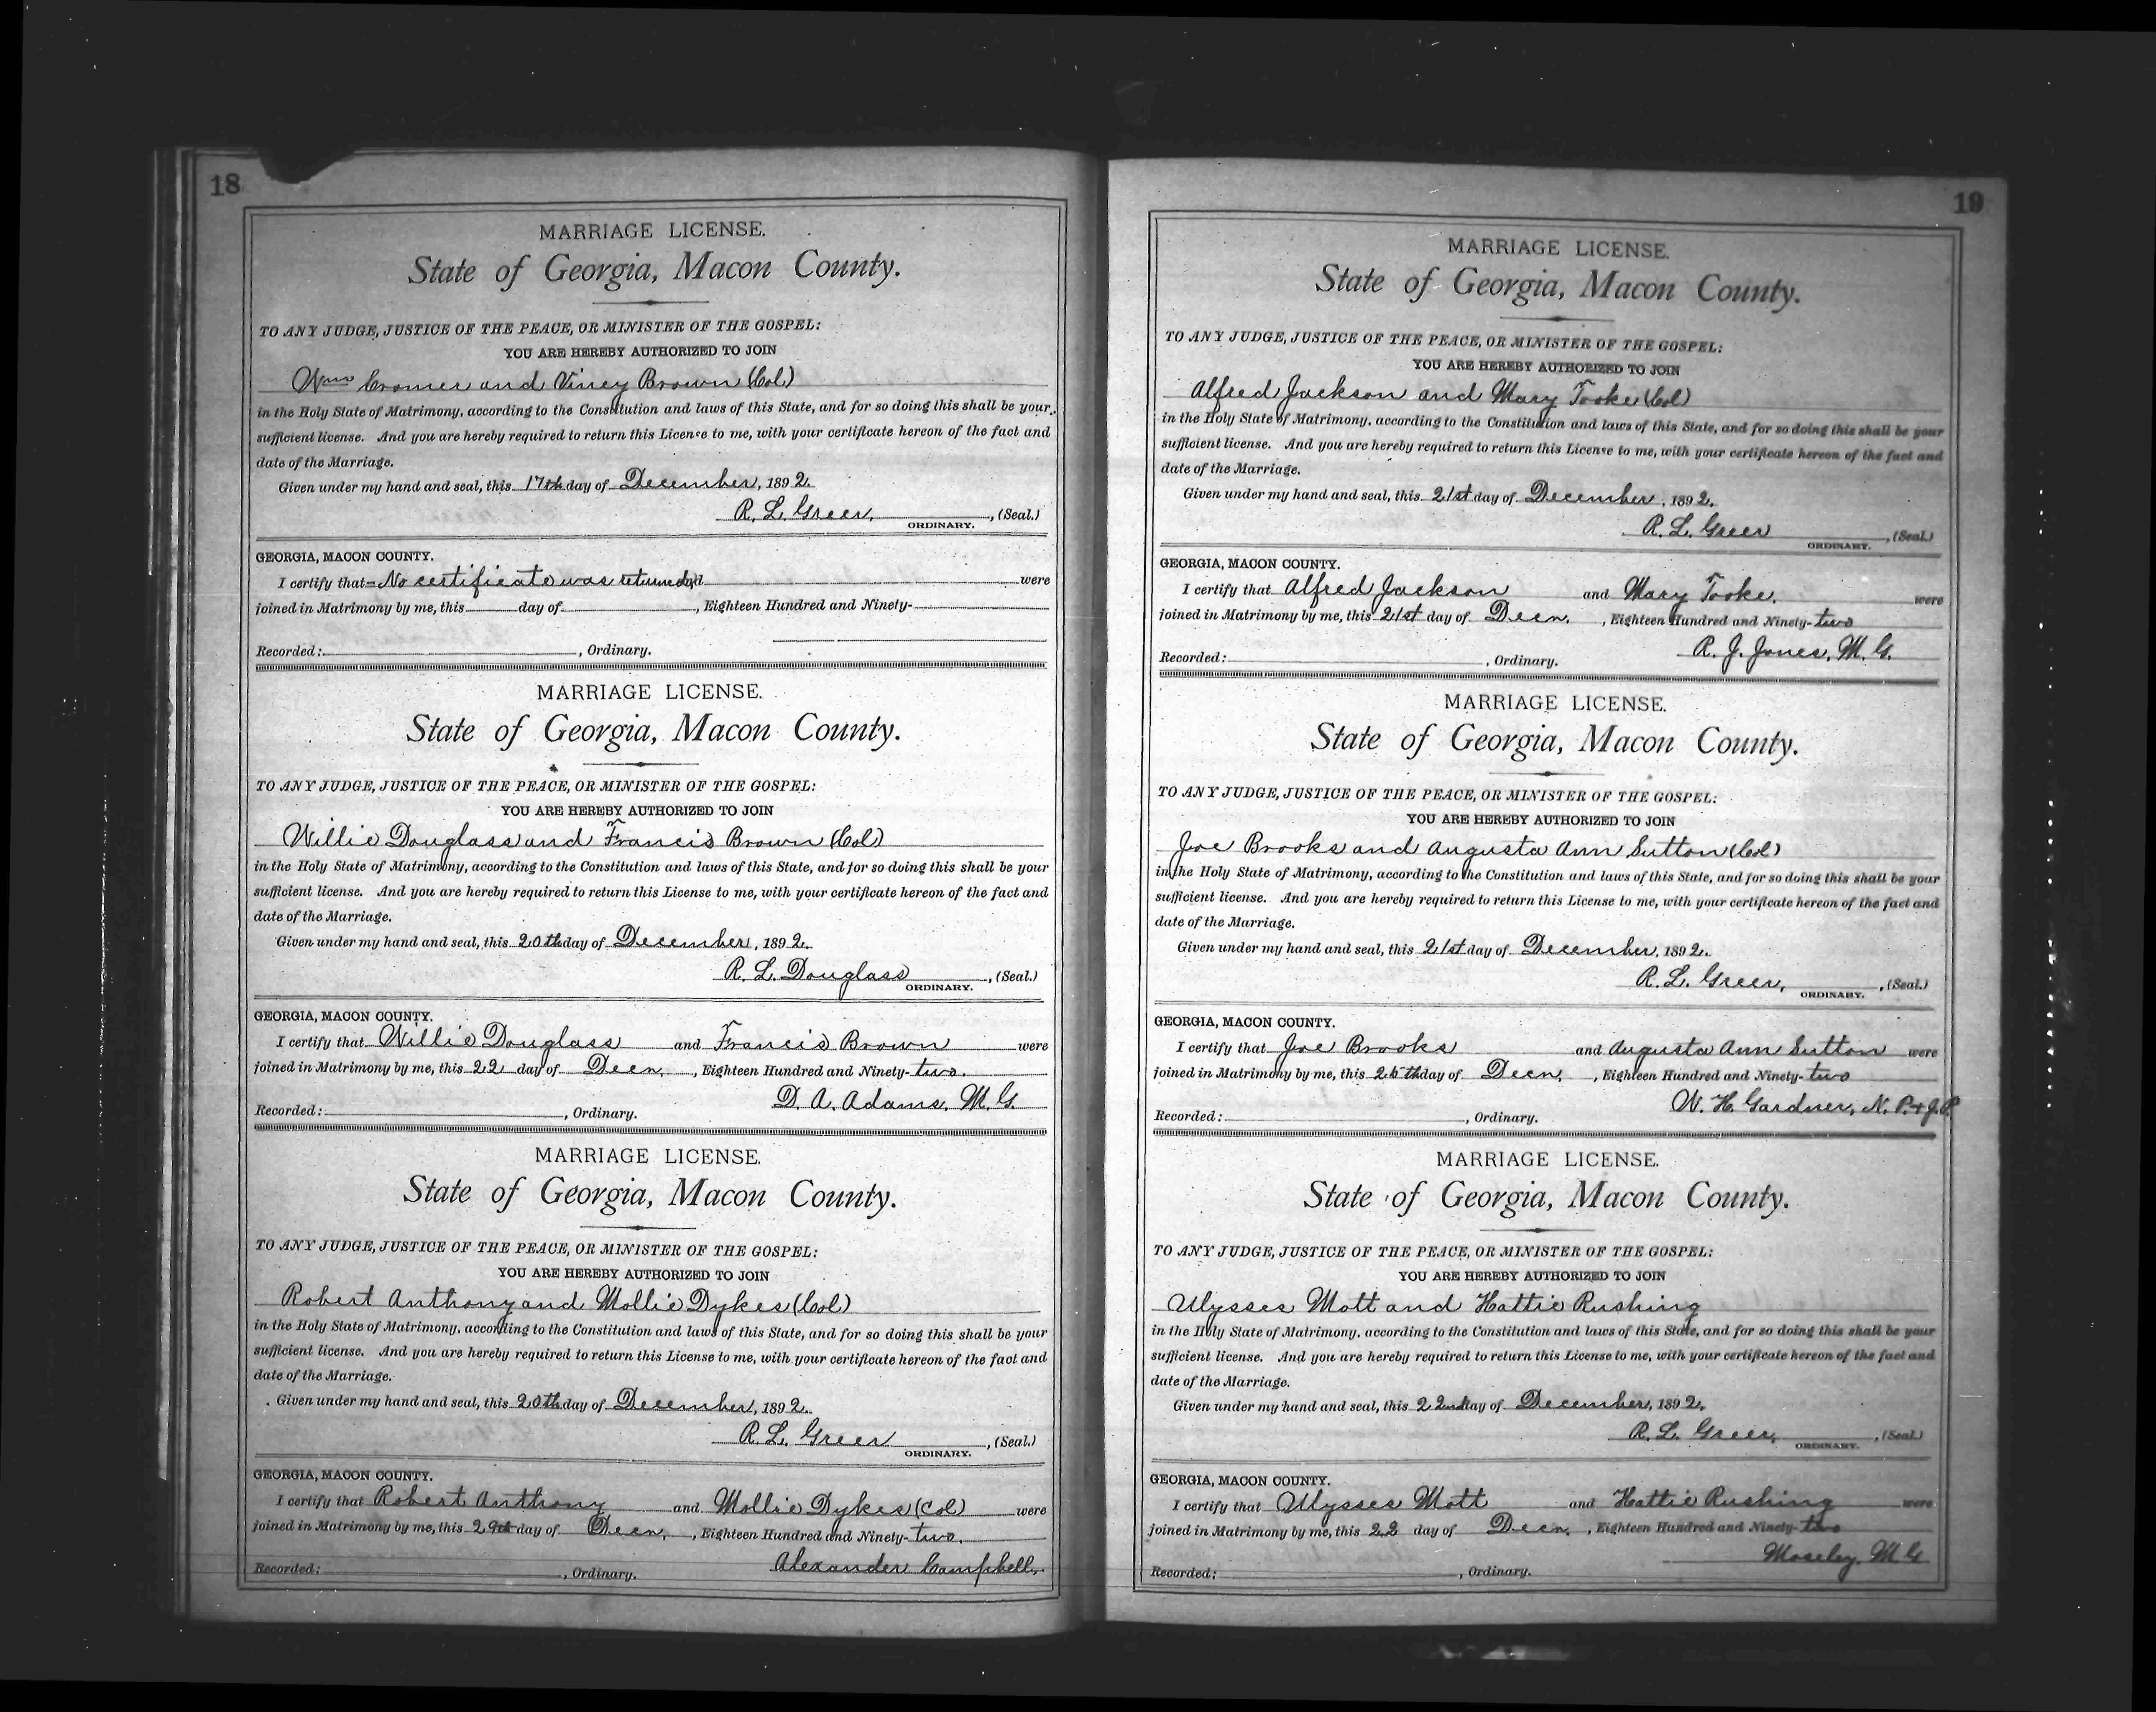 18
MARRIAGE LICENSE.
State of Georgia, Macon County.
TO ANY JUDGE, JUSTICE OF THE PEACE, OR MINISTER OF THE GOSPEL:
YOU ARE HEREBY AUTHORIZED TO JOIN
Wm Cromer and Viney Brown (Col)
in the Holy State of Matrimony, according to the Constitution and laws of this State, and for so doing this shall be your
sufficient license. And you are hereby required to return this License to me, with your certificate hereon of the fact and
date of the Marriage.
Given under my hand and seal, this 17th day of December, 1892.
R. L. Greer, , (Seal.)
ORDINARY.
GEORGIA, MACON COUNTY.
I certify that No certificate was returned were
joined in Matrimony by me, this day of , Eighteen Hundred and Ninety-
Recorded: , Ordinary.
MARRIAGE LICENSE.
State of Georgia, Macon County.
TO ANY JUDGE, JUSTICE OF THE PEACE, OR MINISTER OF THE GOSPEL:
YOU ARE HEREBY AUTHORIZED TO JOIN
Willie Douglass and Francis Brown (Col)
in the Holy State of Matrimony, according to the Constitution and laws of this State, and for so doing this shall be your
sufficient license. And you are hereby required to return this License to me, with your certificate hereon of the fact and
date of the Marriage.
Given under my hand and seal, this 20th day of December, 1892.
R. L. Douglass , (Seal.)
ORDINARY.
GEORGIA, MACON COUNTY.
I certify that Willie Douglass and Francis Brown were
joined in Matrimony by me, this 22 day of Decr, , Eighteen Hundred and Ninety-two.
D. A. Adams, M. G.
Recorded: , Ordinary.
MARRIAGE LICENSE.
State of Georgia, Macon County.
TO ANY JUDGE, JUSTICE OF THE PEACE, OR MINISTER OF THE GOSPEL:
YOU ARE HEREBY AUTHORIZED TO JOIN
Robert Anthony and Mollie Dykes (Col)
in the Holy State of Matrimony, according to the Constitution and laws of this State, and for so doing this shall be your
sufficient license. And you are hereby required to return this License to me, with your certificate hereon of the fact and
date of the Marriage.
Given under my hand and seal, this 20th day of December, 1892.
R. L. Greer , (Seal.)
ORDINARY.
GEORGIA, MACON COUNTY.
I certify that Robert Anthony and Mollie Dykes (Col) were
joined in Matrimony by me, this 29th day of Decr, , Eighteen Hundred and Ninety-two.
Recorded: , Ordinary. Alexander Campbell,
19
MARRIAGE LICENSE.
State of Georgia, Macon County.
TO ANY JUDGE, JUSTICE OF THE PEACE, OR MINISTER OF THE GOSPEL:
YOU ARE HEREBY AUTHORIZED TO JOIN
Alfred Jackson and Mary Tooke (Col)
in the Holy State of Matrimony, according to the Constitution and laws of this State, and for so doing this shall be your
sufficient license. And you are hereby required to return this License to me, with your certificate hereon of the fact and
date of the Marriage.
Given under my hand and seal, this 21st day of December, 1892.
R. L. Greer , (Seal.)
ORDINARY.
GEORGIA, MACON COUNTY.
I certify that Alfred Jackson and Mary Tooke. were
joined in Matrimony by me, this 21st day of Decr. , Eighteen Hundred and Ninety-two
R. J. Jones, M. G.
Recorded: , Ordinary.
MARRIAGE LICENSE.
State of Georgia, Macon County.
TO ANY JUDGE, JUSTICE OF THE PEACE, OR MINISTER OF THE GOSPEL:
YOU ARE HEREBY AUTHORIZED TO JOIN
Joe Brooks and Augusta Ann Sutton (Col)
in the Holy State of Matrimony, according to the Constitution and laws of this State, and for so doing this shall be your
sufficient license. And you are hereby required to return this License to me, with your certificate hereon of the fact and
date of the Marriage.
Given under my hand and seal, this 21st day of December, 1892.
R. L. Greer, , (Seal.)
ORDINARY.
GEORGIA, MACON COUNTY.
I certify that Joe Brooks and Augusta Ann Sutton were
joined in Matrimony by me, this day of Decr, , Eighteen Hundred and Ninety-two
W. H. Gardner, N. P. & J. P.
Recorded: , Ordinary.
MARRIAGE LICENSE.
State of Georgia, Macon County.
TO ANY JUDGE, JUSTICE OF THE PEACE, OR MINISTER OF THE GOSPEL:
YOU ARE HEREBY AUTHORIZED TO JOIN
Ulysses Mott and Hattie Rushing
in the Holy State of Matrimony, according to the Constitution and laws of this State, and for so doing this shall be your
sufficient license. And you are hereby required to return this License to me, with your certificate hereon of the fact and
date of the Marriage.
Given under my hand and seal, this 22nd day of December, 1892.
R. L. Greer, , (Seal.)
ORDINARY.
GEORGIA, MACON COUNTY.
I certify that Ulysses Mott and Hattie Rushing were
joined in Matrimony by me, this 22 day of Decr, , Eighteen Hundred and Ninety-two
Moseley, M G
Recorded: , Ordinary.